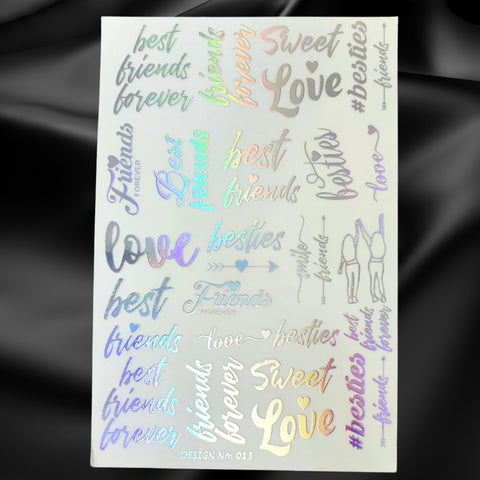 best
friends
forever
friends
forever
Sweet
Love
#besties
friends
Friends
FOREVER
Best
friends
best
friends
besties
love
love
besties
smile
friends
best
friends
Friends
FOREVER
love
besties
best
friends
forever
best
friends
forever
friends
forever
Sweet
Love
#besties
friends
DESIGN Nr. 013